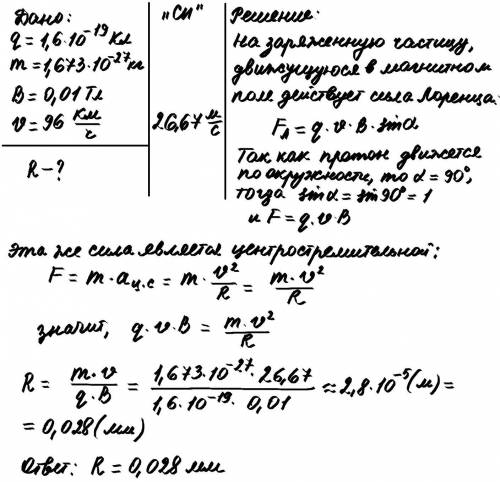 Дано:
q = 1,6·10⁻¹⁹ Кл
m = 1,673·10⁻²⁷ кг
B = 0,01 Тл
v = 96 км/с
R - ?
„СИ"
26,67 м/с
Решение:
На заряженную частицу,
движущуюся в магнитном
поле действует сила Лоренца:
Fл = q·v·B·sinα
Так как протон движется
по окружности, то α = 90°,
тогда sinα = sin90° = 1
и F = q·v·B
Эта же сила является центростремительной:
F = m·aц.с = m·v²/R = m·v²/R
значит, q·v·B = m·v²/R
R = m·v/q·B = 1,673·10⁻²⁷·26,67/1,6·10⁻¹⁹·0,01 ≈ 2,8·10⁻⁵ (м) =
= 0,028 (мм)
Ответ: R = 0,028 мм